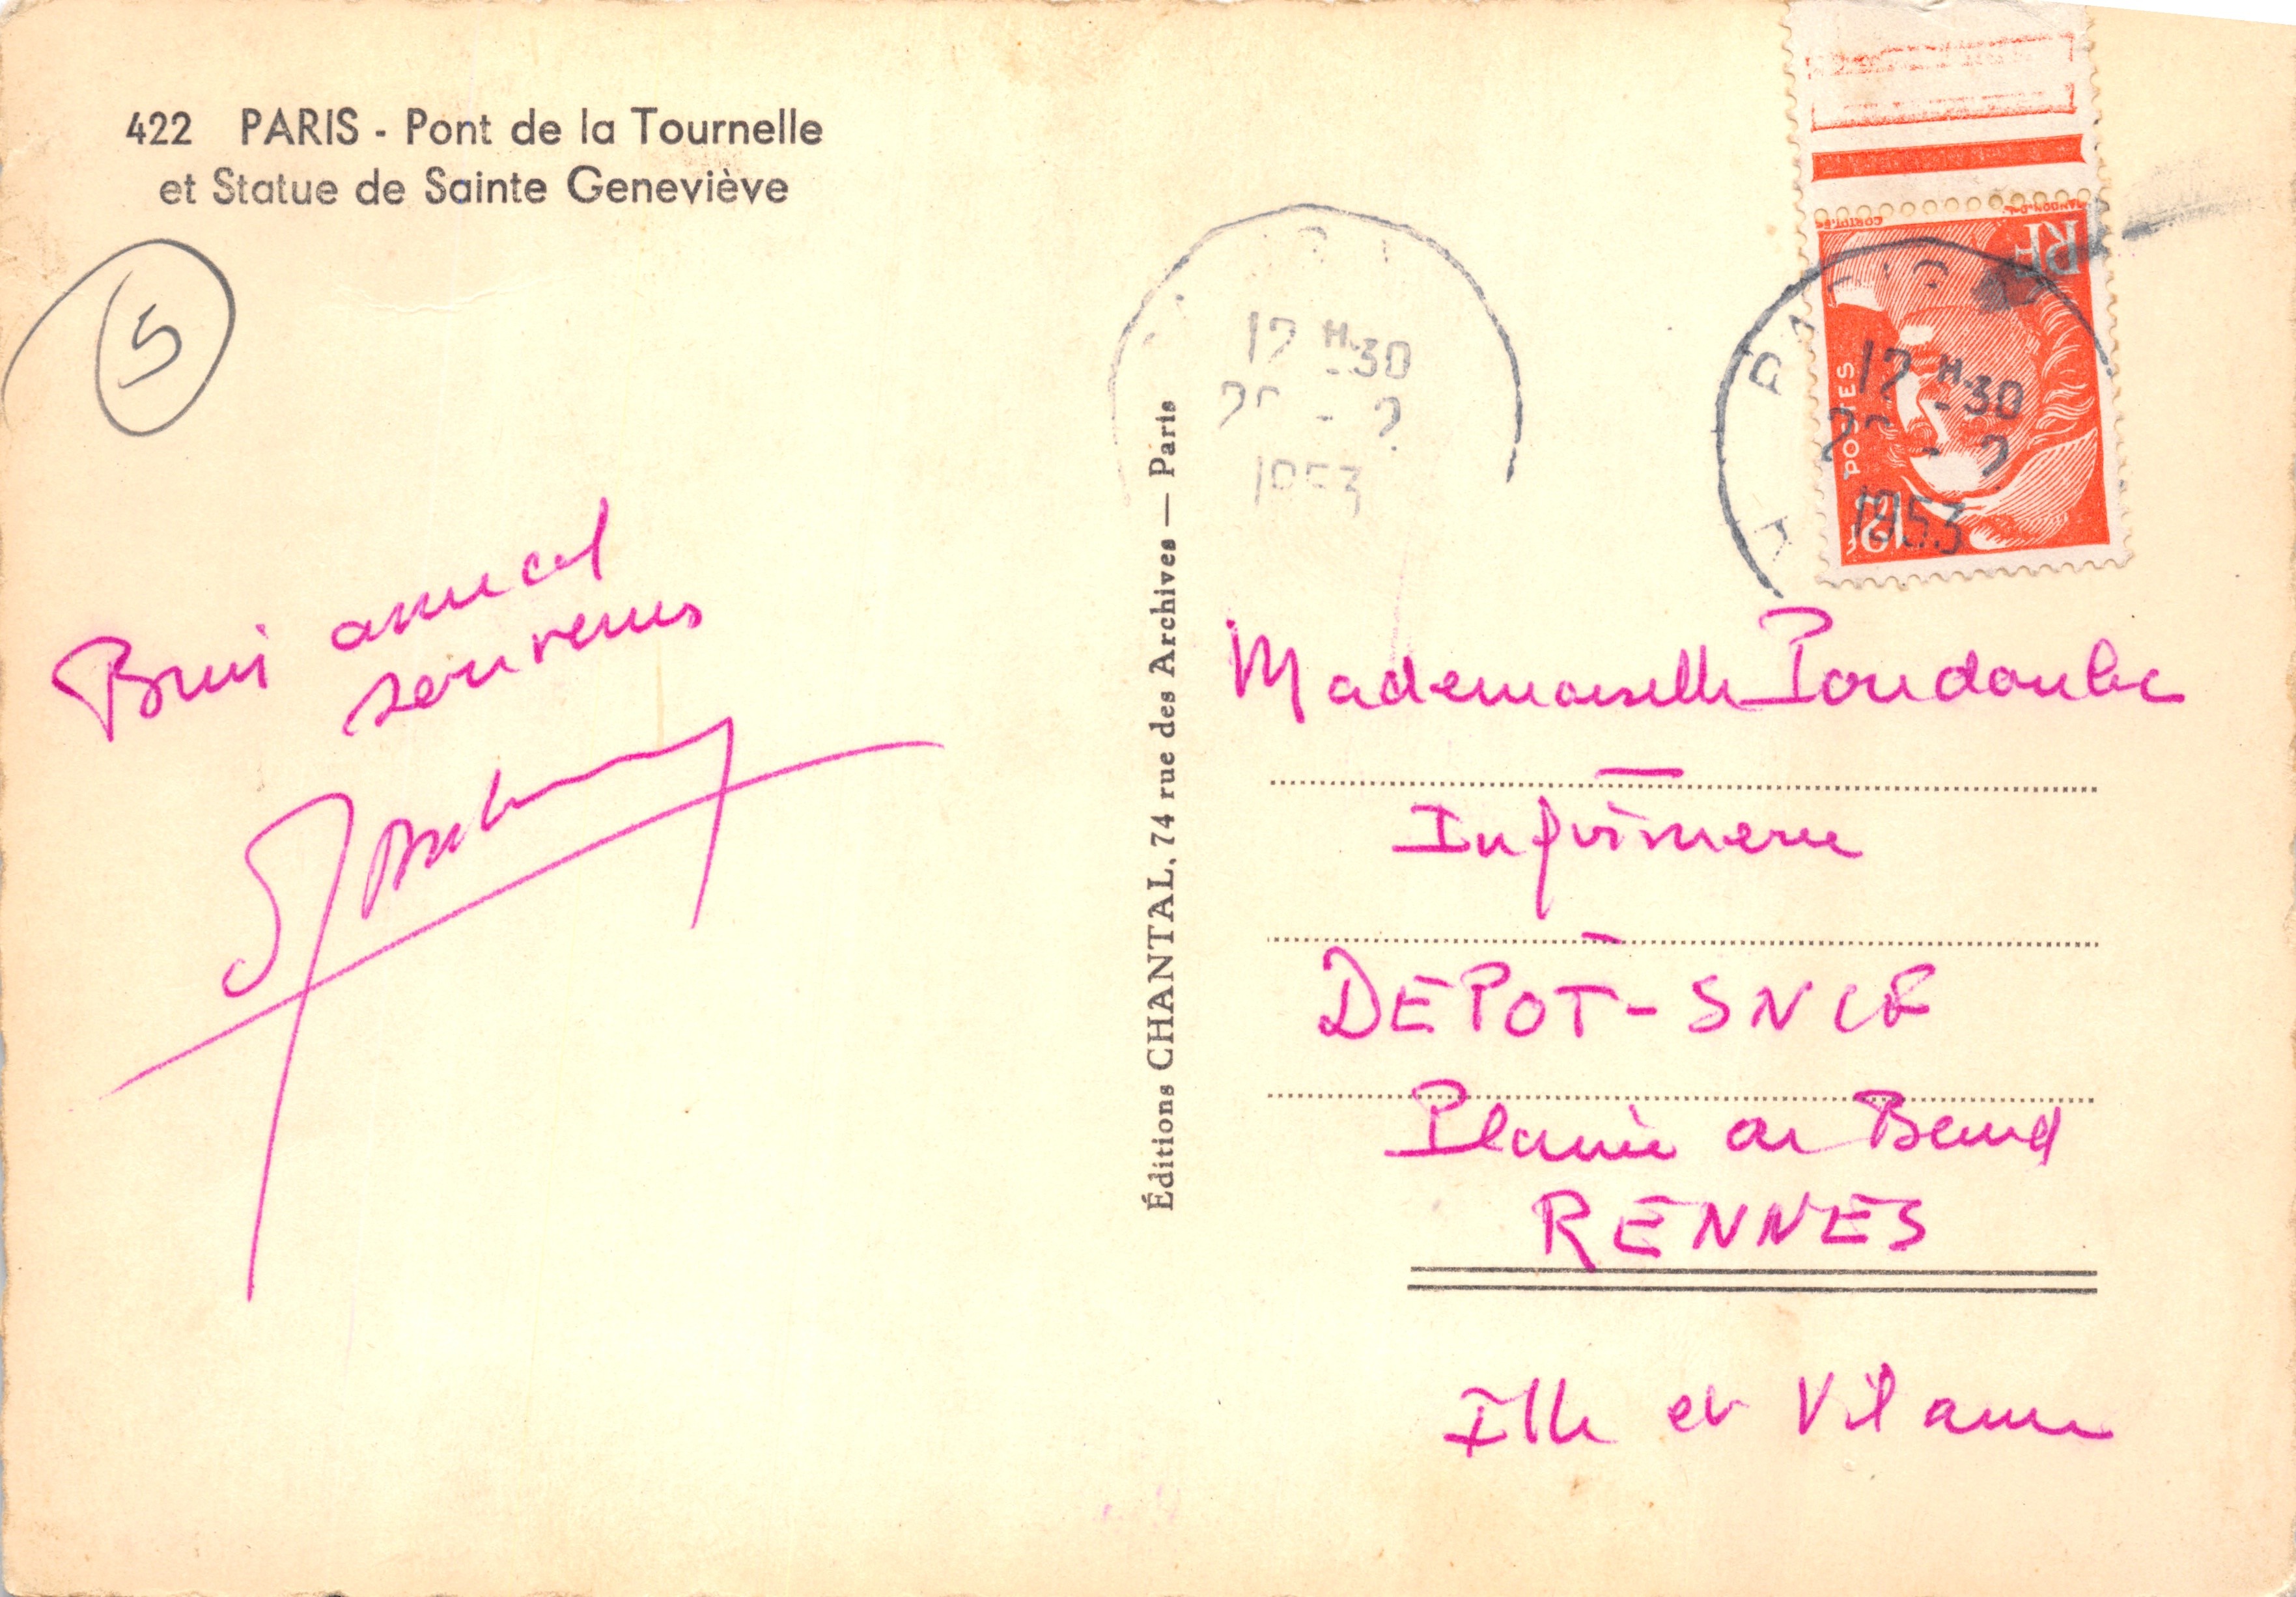 422 PARIS - Pont de la Tournelle
et Statue de Sainte Geneviève
5
Bien amical
souvenir
Éditions CHANTAL, 74 rue des Archives — Paris
PARIS
12 H 30
1953
RF
POSTES
12F
PARIS
12 H 30
1953
Mademoiselle
Imprimerie
DEPOT - SNCF
Plaine de Baud
RENNES
Ille et Vilaine